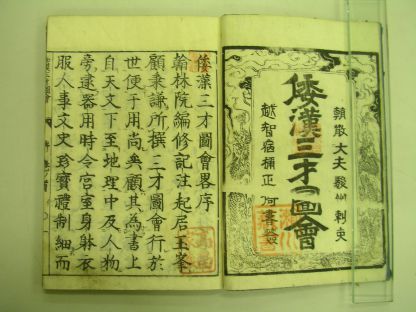 朝散大夫駿州刺史
倭漢三才圖會
越智宿禰正
倭漢三才圖會畧序
翰林院編修記注起居王峯
顧秉謙所撰三才圖會行於
世便于用尚矣顧其為書上
自天文下至地理中及人物
旁逮器用時令宮室身躰衣
服人事文史珍寶體制細而